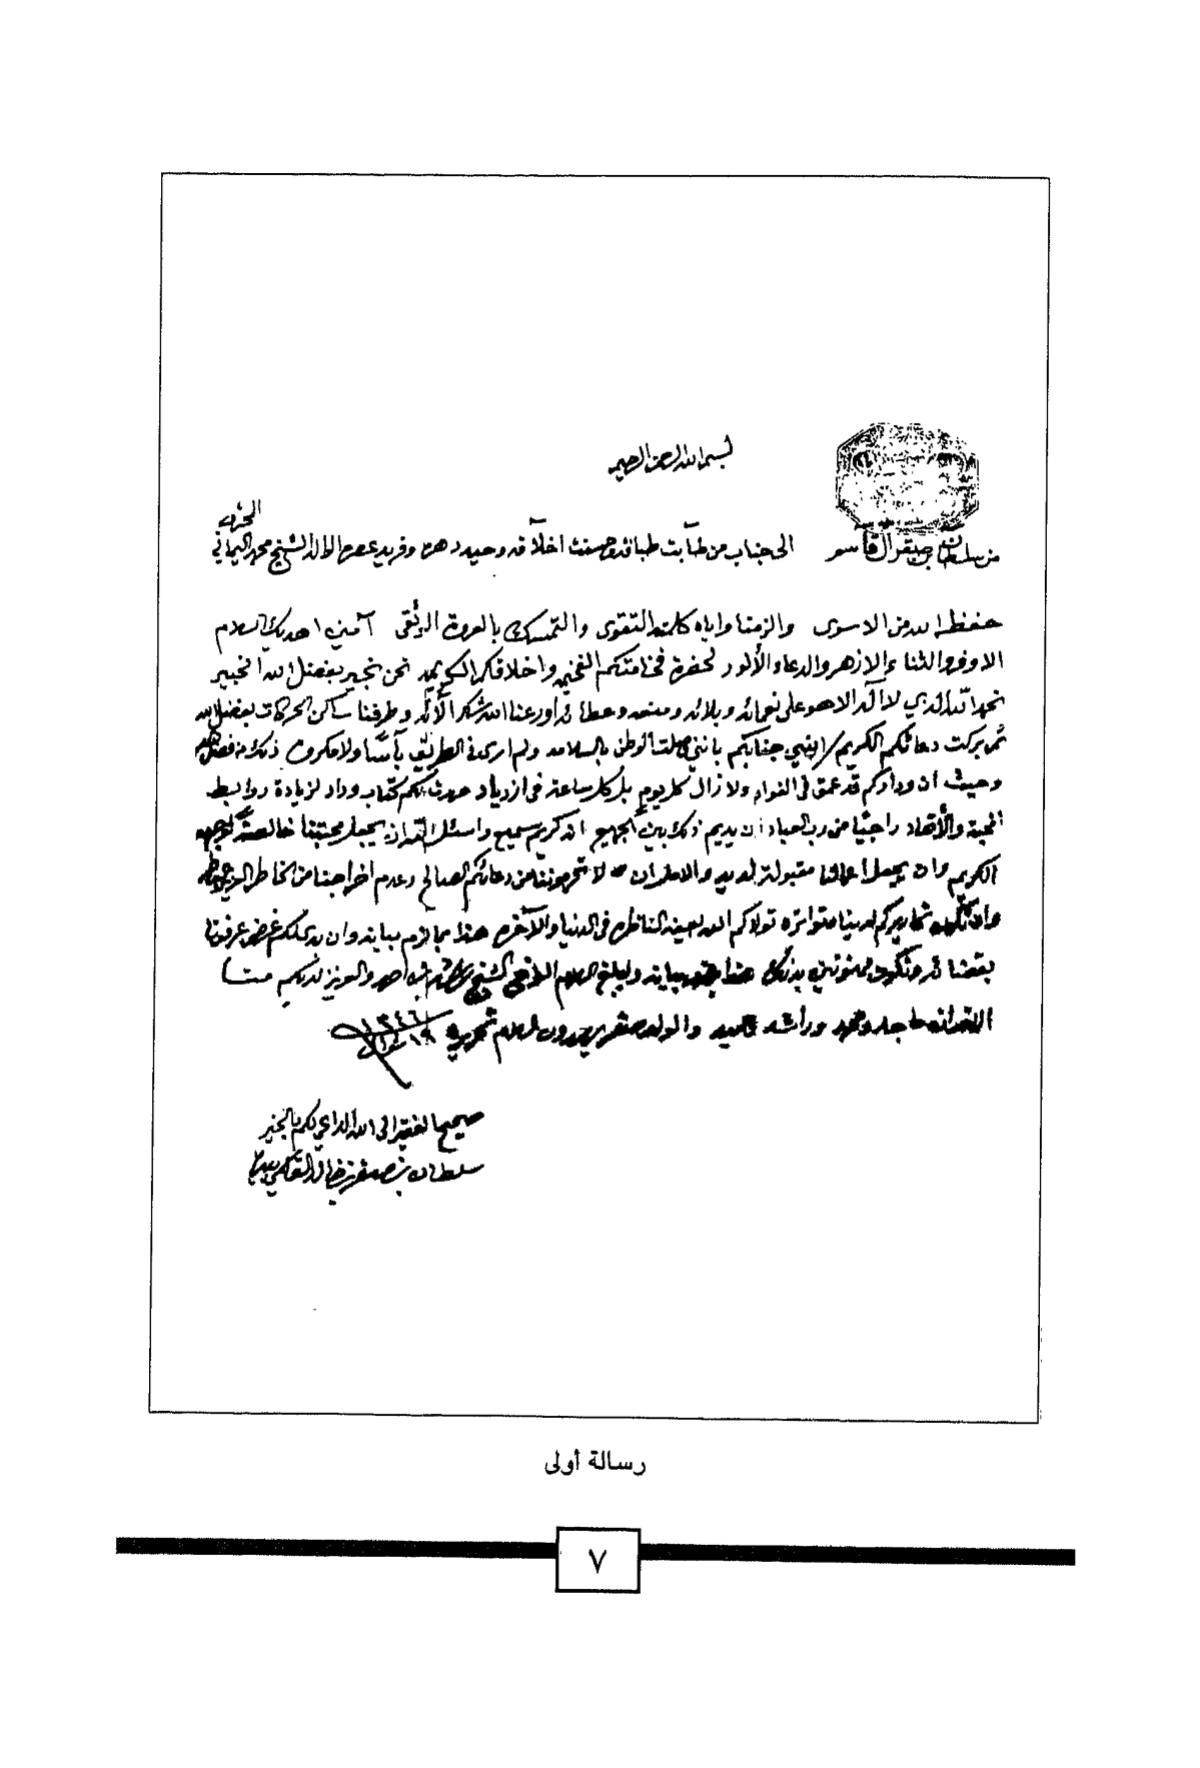 بسم الله الرحمن الرحيم
من سلطان بن صقر القاسمي
الى جناب من طآبت طبائعه وحسنت اخلآقه وحيد دهره وفريد عصره الوالد الشيخ محمد اليماني
حفظه الله من الاسوى والزمنا واياه كلمة التقوى والتمسك بالعروة الوثقى آمين اهديك السلام
الاوفر والثناء الازهر والدعاء الأنور لحضرة فخامتكم واخلاقكم نحن بخير بفضل الله الخبير
نحمد الله الذي لا آله الا هو على نعمائه وبلائه ومنعه وعطائه اوزعنا الله شكر آلآئه وطرفنا ساكن الحركات بفضل الله
ثم بركت دعائكم الكريم جنابكم بانني وصلت الوطن بالسلامه ولم ارى في الطريق بآسا ولا مكروه ذلك من فضل الله
وحيث ان ودادكم قد عمق في الفواد ولا زال كل يوم بل كل ساعة في ازدياد لكم كتاب وداد لزيادة روابط
المحبة والأتحاد راجيا من رب العباد أن يديم ذلك بين الجميع انه كريم سميع واسئل الله ان يجعل محبتنا خالصة لوجهه
الكريم وان يجعل اعمالنا مقبولة لديه لا تحرموننا من دعائكم الصالح وعدم اخراجنا من الخاطر
لدينا متواتره تولاكم الله بعينه الناظره في الدنيا والآخره هذا ما لزم بيانه وان بدى لكم غرض عرفونا
بقضائه ونكون ممنونين بذلك هذا بيانه وابلغ السلام الشيخ بن احمد والعزيز لديكم منا
ماجد ومحمد وراشد والولد صقر يهدون السلام تحريره
١٩ ١٣٤٦
صحيح الفقير الى الله الداعي لكم بالخير
سلطان بن صقر بن خالد القاسمي بيده
رسالة أولى
٧